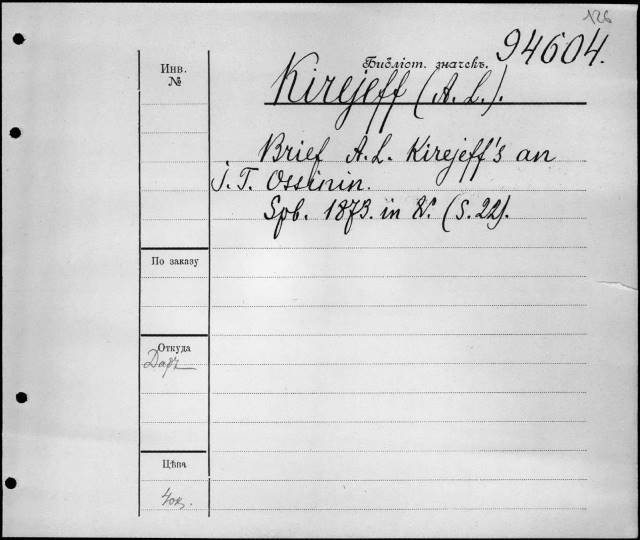 126
Библіот. значекъ. 94604.
Инв.
№
Kirejeff (A. L.).
Brief A. L. Kirejeff's an
J. T. Ossinin.
Spb. 1873. in 8º. (S. 22).
По заказу
Откуда
Даръ
Цѣна
40к.